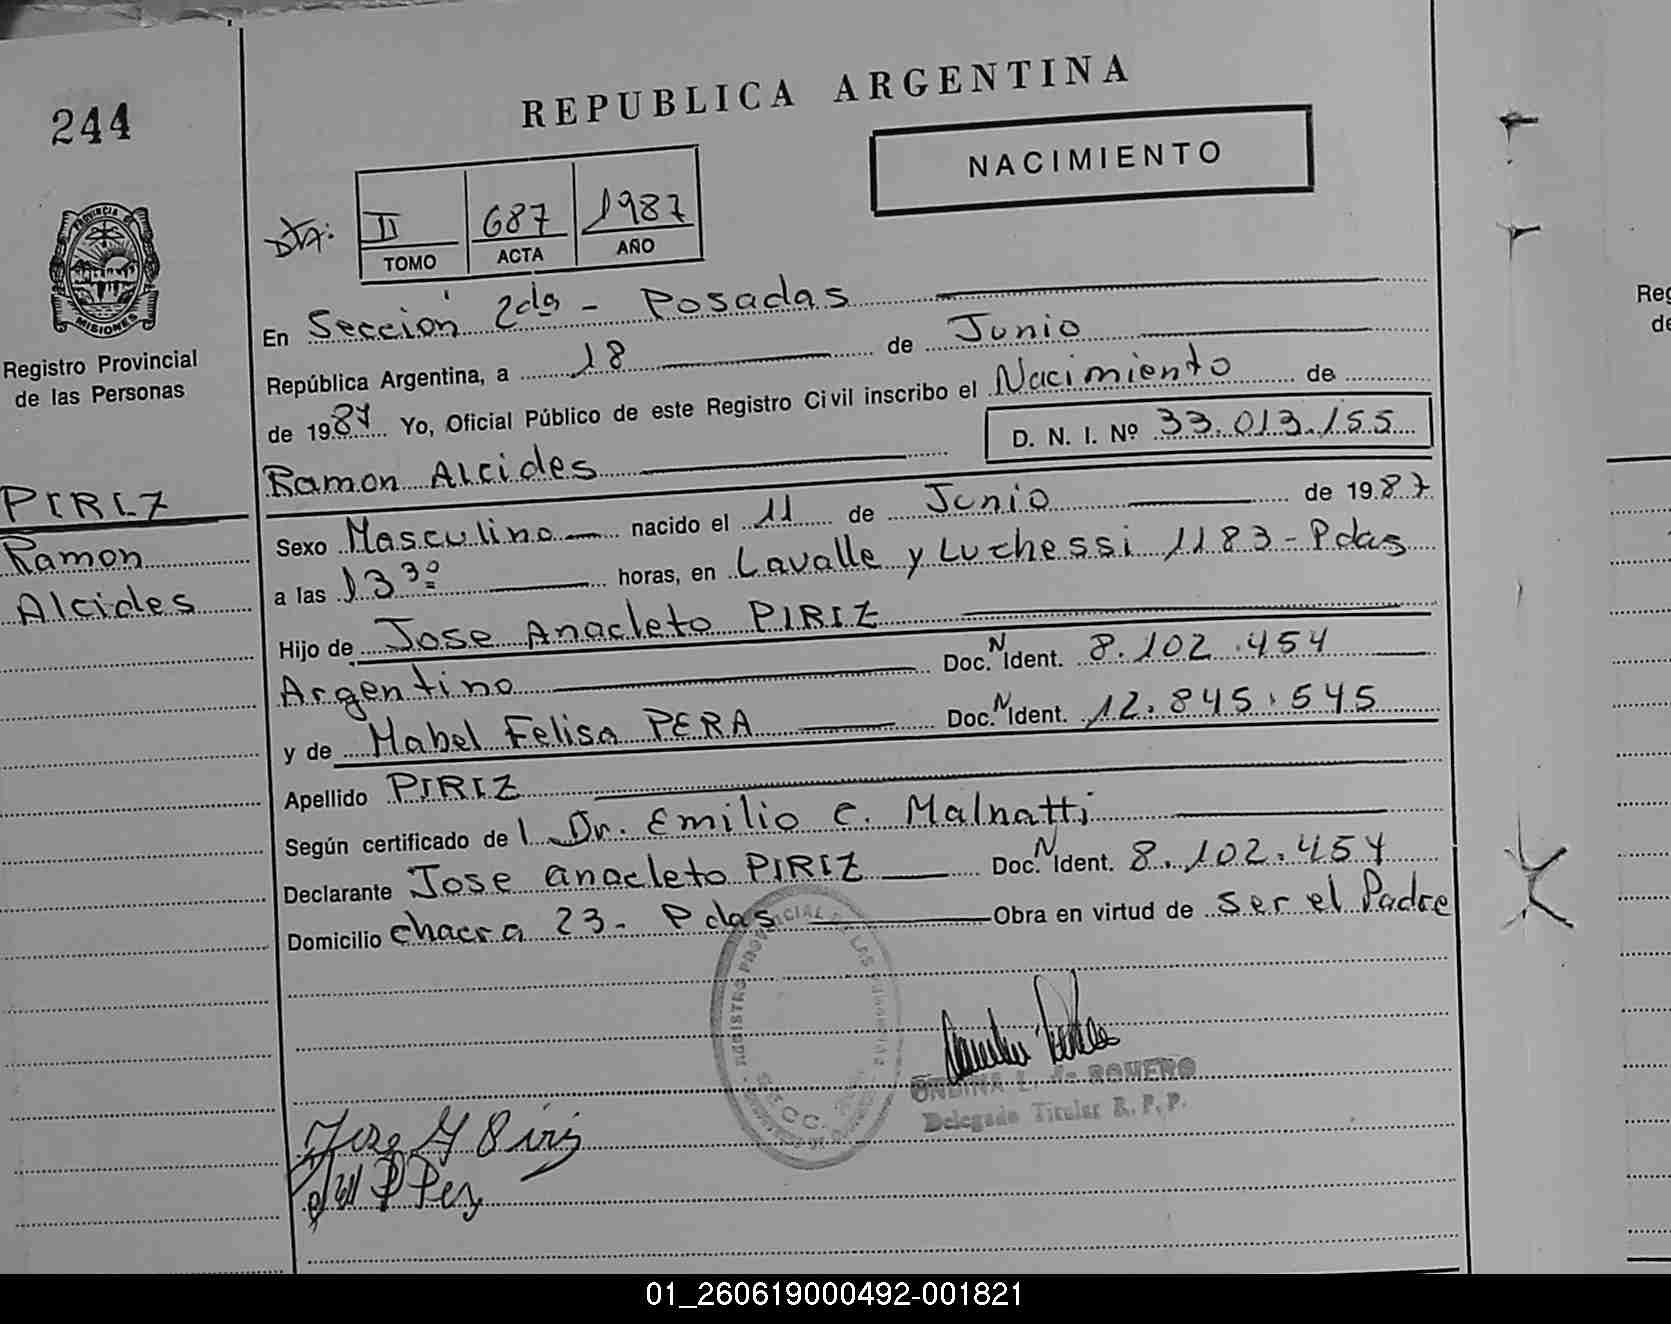 244
REPUBLICA ARGENTINA
NACIMIENTO
II 687 1987
TOMO ACTA AÑO
PROVINCIA DE
MISIONES
Registro Provincial
de las Personas
En Sección 2da - Posadas
República Argentina, a 18 de Junio
de 1987 Yo, Oficial Público de este Registro Civil inscribo el Nacimiento de
D. N. I. Nº 33.013.155
Ramon Alcides
PIRIZ
Ramon
Alcides
Sexo Masculino nacido el 11 de Junio de 1987
a las 13 30 horas, en Lavalle y Luchessi 1183 - Pdas
Hijo de Jose Anacleto PIRIZ
Argentino Doc. N Ident. 8.102.454
y de Mabel Felisa PERA Doc. N Ident. 12.845.545
Apellido PIRIZ
Según certificado de l Dr. Emilio C. Malnatti
Declarante Jose Anacleto PIRIZ Doc. N Ident. 8.102.454
Domicilio chacra 23 - Pdas Obra en virtud de ser el Padre
ONDINA L. de ROMERO
Delegado Titular R. P. P.
Reg
de
01_260619000492-001821